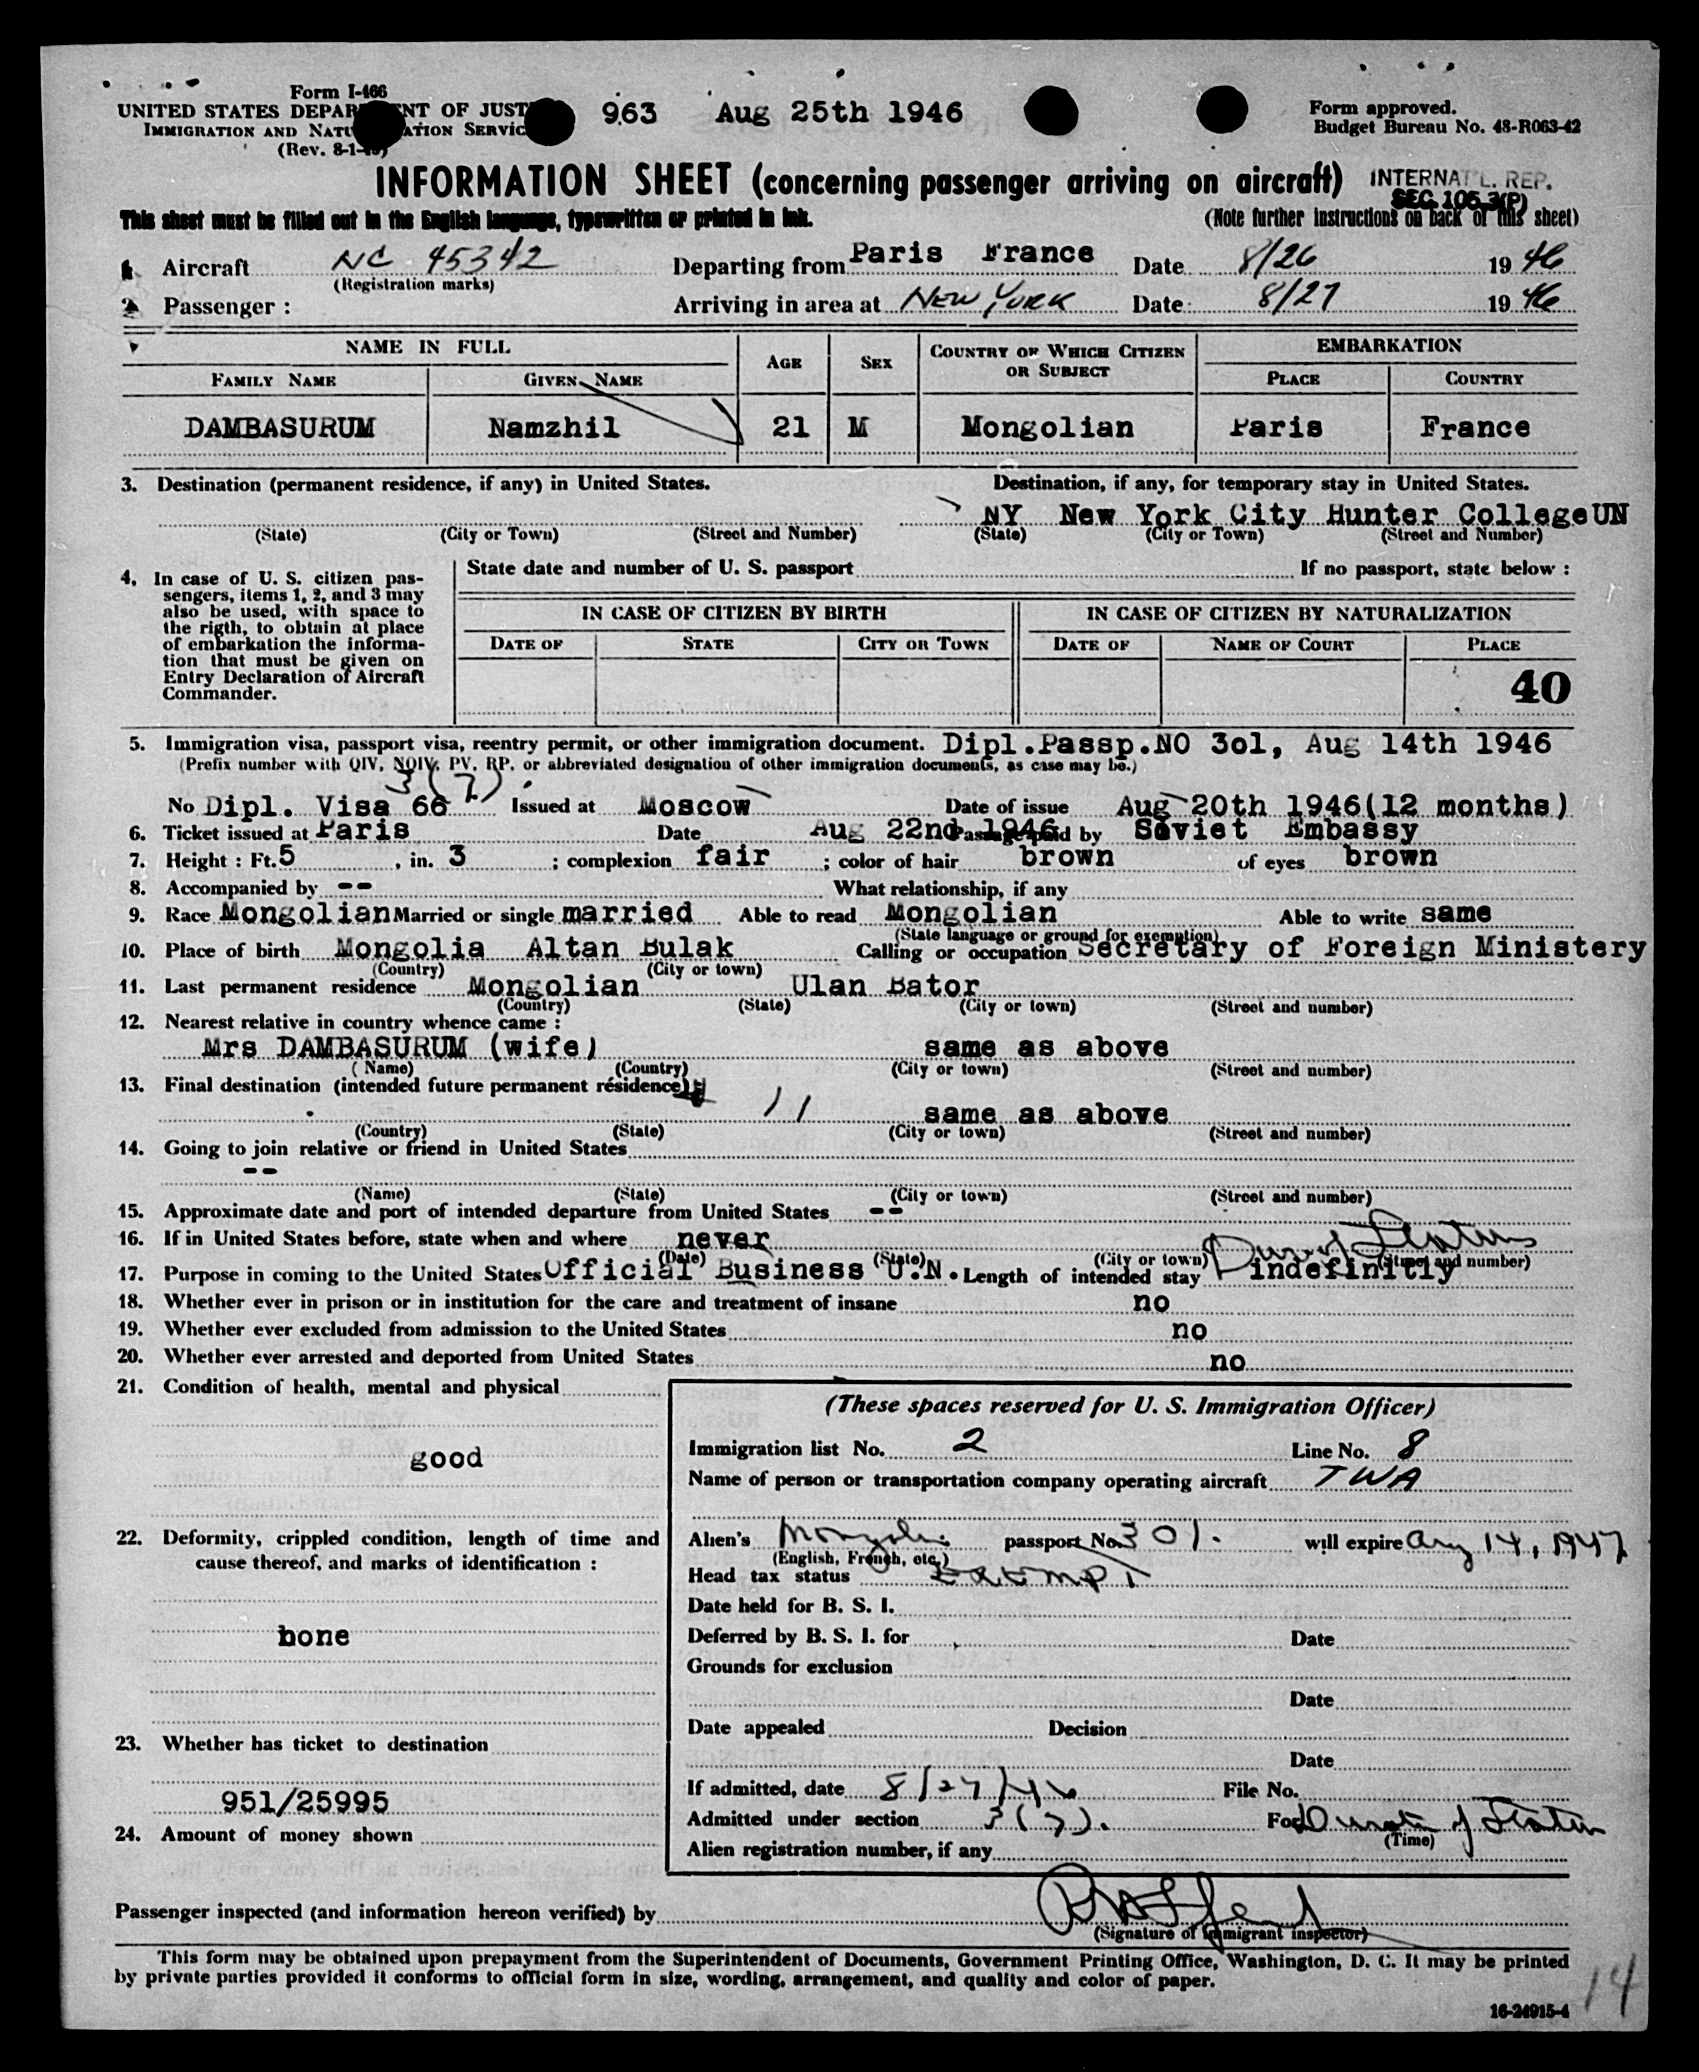 Form I-466
UNITED STATES DEPAR NT OF JUST 963 Aug 25th 1946 Form approved.
IMMIGRATION AND NATU ATION SERVIC Budget Bureau No. 48-R063-42
(Rev. 8-1-45)
INFORMATION SHEET (concerning passenger arriving on aircraft) INTERNAT'L. REP.
SEC. 105.3(P)
This sheet must be filled out in the English language, typewritten or printed in ink. (Note further instructions on back of this sheet)
1. Aircraft NC 45342 Departing from Paris France Date 8/26 1946
(Registration marks)
2. Passenger : Arriving in area at NEW YORK Date 8/27 1946
NAME IN FULL AGE SEX COUNTRY OF WHICH CITIZEN OR SUBJECT EMBARKATION
FAMILY NAME GIVEN NAME PLACE COUNTRY
DAMBASURUM Namzhil 21 M Mongolian Paris France
3. Destination (permanent residence, if any) in United States. Destination, if any, for temporary stay in United States.
NY New York City Hunter College UN
(State) (City or Town) (Street and Number) (State) (City or Town) (Street and Number)
4. In case of U. S. citizen pas-
sengers, items 1, 2, and 3 may
also be used, with space to
the rigth, to obtain at place
of embarkation the informa-
tion that must be given on
Entry Declaration of Aircraft
Commander.
State date and number of U. S. passport If no passport, state below :
IN CASE OF CITIZEN BY BIRTH IN CASE OF CITIZEN BY NATURALIZATION
DATE OF STATE CITY OR TOWN DATE OF NAME OF COURT PLACE
40
5. Immigration visa, passport visa, reentry permit, or other immigration document. Dipl.Passp.NO 3o1, Aug 14th 1946
(Prefix number with QIV, NQIV, PV, RP, or abbreviated designation of other immigration documents, as case may be.)
3(7)
No Dipl. Visa 66 Issued at Moscow Date of issue Aug 20th 1946(12 months)
6. Ticket issued at Paris Date Aug 22nd 1946 Passage paid by Soviet Embassy
7. Height : Ft. 5 , in. 3 ; complexion fair ; color of hair brown of eyes brown
8. Accompanied by -- What relationship, if any
9. Race Mongolian Married or single married Able to read Mongolian Able to write same
(State language or ground for exemption)
10. Place of birth Mongolia Altan Bulak Calling or occupation Secretary of Foreign Ministery
(Country) (City or town)
11. Last permanent residence Mongolian Ulan Bator
(Country) (State) (City or town) (Street and number)
12. Nearest relative in country whence came :
Mrs DAMBASURUM (wife) same as above
(Name) (Country) (City or town) (Street and number)
13. Final destination (intended future permanent résidence)
11 same as above
(Country) (State) (City or town) (Street and number)
14. Going to join relative or friend in United States
--
(Name) (State) (City or town) (Street and number)
15. Approximate date and port of intended departure from United States --
16. If in United States before, state when and where never
(Date) (State) (City or town) (Street and number)
Dur of Status
17. Purpose in coming to the United States Official Business U.N. Length of intended stay indefinitly
18. Whether ever in prison or in institution for the care and treatment of insane no
19. Whether ever excluded from admission to the United States no
20. Whether ever arrested and deported from United States no
21. Condition of health, mental and physical
good
22. Deformity, crippled condition, length of time and
cause thereof, and marks of identification :
none
23. Whether has ticket to destination
951/25995
24. Amount of money shown
(These spaces reserved for U. S. Immigration Officer)
Immigration list No. 2 Line No. 8
Name of person or transportation company operating aircraft TWA
Alien's Mongolian passport No. 301. will expire Aug 14, 1947
(English, French, etc.)
Head tax status EXEMPT
Date held for B. S. I.
Deferred by B. S. I. for Date
Grounds for exclusion
Date
Date appealed Decision
Date
If admitted, date 8/27/46 File No.
Admitted under section 3(7). For Duration of Status
(Time)
Alien registration number, if any
Passenger inspected (and information hereon verified) by
(Signature of immigrant inspector)
This form may be obtained upon prepayment from the Superintendent of Documents, Government Printing Office, Washington, D. C. It may be printed
by private parties provided it conforms to official form in size, wording, arrangement, and quality and color of paper.
14
16-24915-4